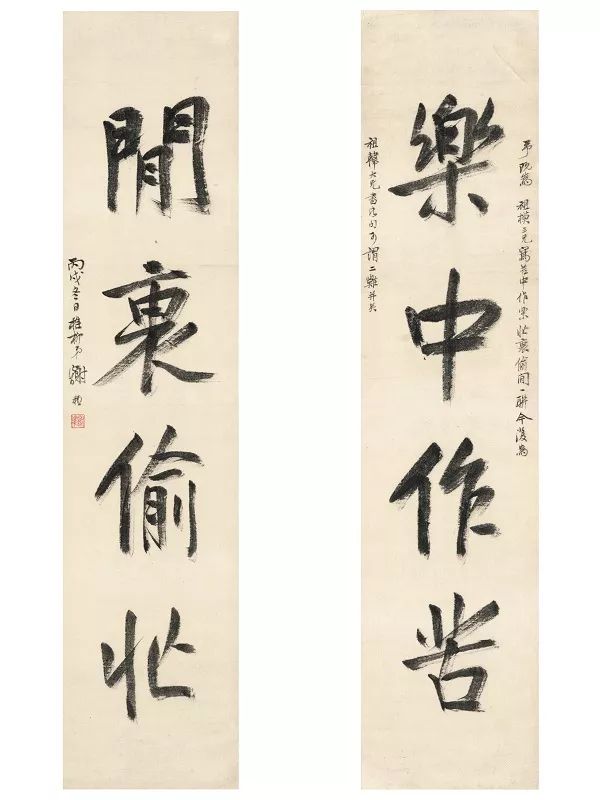 予既為祖模三兄寫苦中作樂忙裏偷閒一聯今復為
樂中作苦
祖韓大兄書此句可謂二難并矣
閒裏偷忙
丙戌冬日稚柳弟謝稚